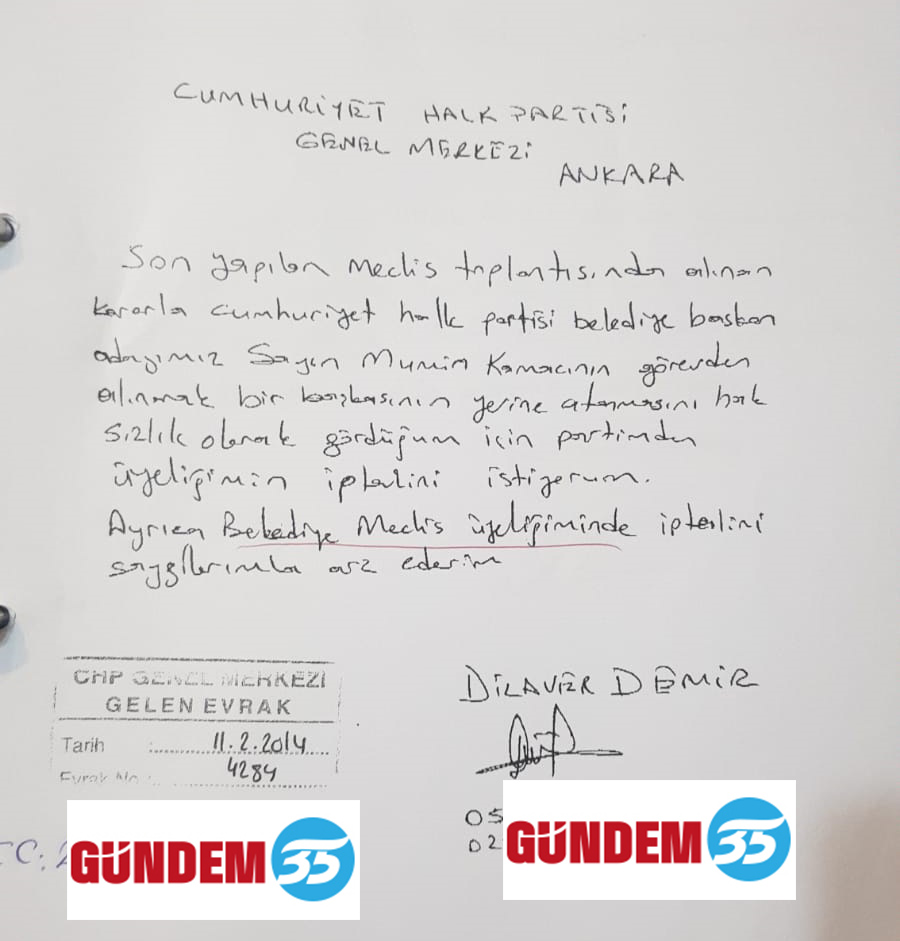 CUMHURİYET HALK PARTİSİ
GENEL MERKEZİ
ANKARA
Son yapılan Meclis toplantısında alınan
kararla cumhuriyet halk partisi belediye başkan
adayımız Sayın Mumin Kamacının görevden
alınarak bir başkasının yerine atanmasını hak
sızlık olarak gördüğüm için partimden
üyeliğimin iptalini istiyorum.
Ayrıca Belediye Meclis üyeliğiminde iptalini
saygılarımla arz ederim
DİLAVER DEMİR
CHP GENEL MERKEZİ
GELEN EVRAK
Tarih :............11.2.2014....
Evrak No : 4284
05
02
TC:
GÜNDEM 35
GÜNDEM 35